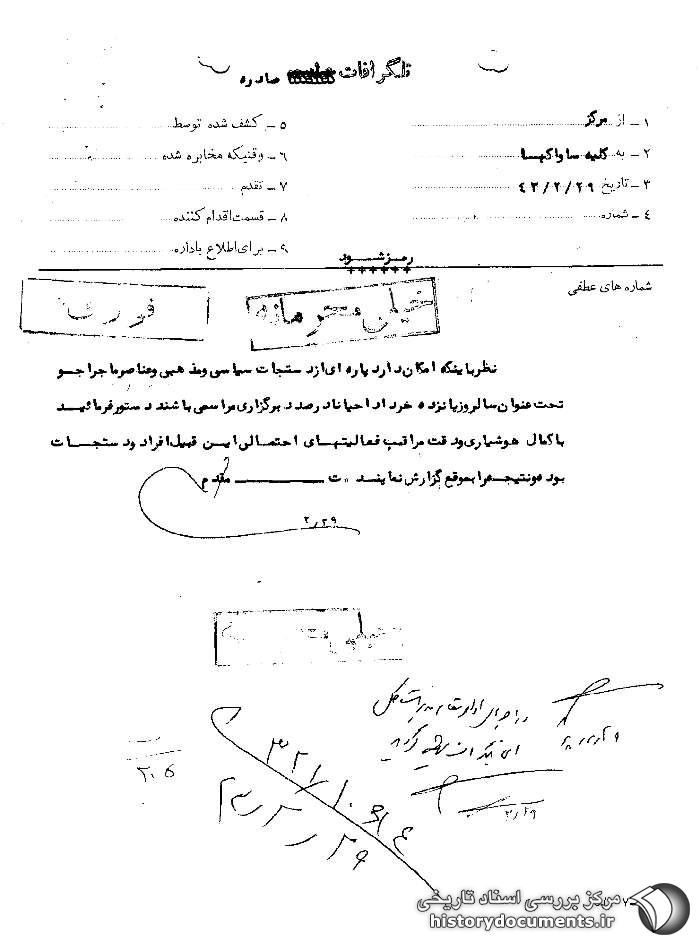 تلگرافات صادره
۱ ـ از مرکز
۲ ـ به کلیه ساواکها
۳ ـ تاریخ ۴۳/۲/۲۹
۴ ـ شماره
۵ ـ کشف شده توسط
۶ ـ وقتیکه مخابره شده
۷ ـ تقدم
۸ ـ قسمت اقدام کننده
۹ ـ برای اطلاع باداره
رمز شود
++++++
شماره های عطفی
خیلی محرمانه
نظر باینکه امکان دارد پاره ای از دستجات سیاسی و مذهبی و عناصر ماجراجو
تحت عنوان سالروز پانزده خرداد احیانا درصدد برگزاری مراسمی باشند دستور فرمائید
با کمال هوشیاری و دقت مراقب فعالیتهای احتمالی این قبیل افراد و دستجات
بوده و نتیجه را بموقع گزارش نمایند . ت ــــــــ مقدم
۲ر۲۹
خیلی
در اجرای اوامر
۲ر۲۹
۲۰۵
۳۲۱/
۴۳/۲/۲۹
مرکز بررسی اسناد تاریخی
historydocuments.ir